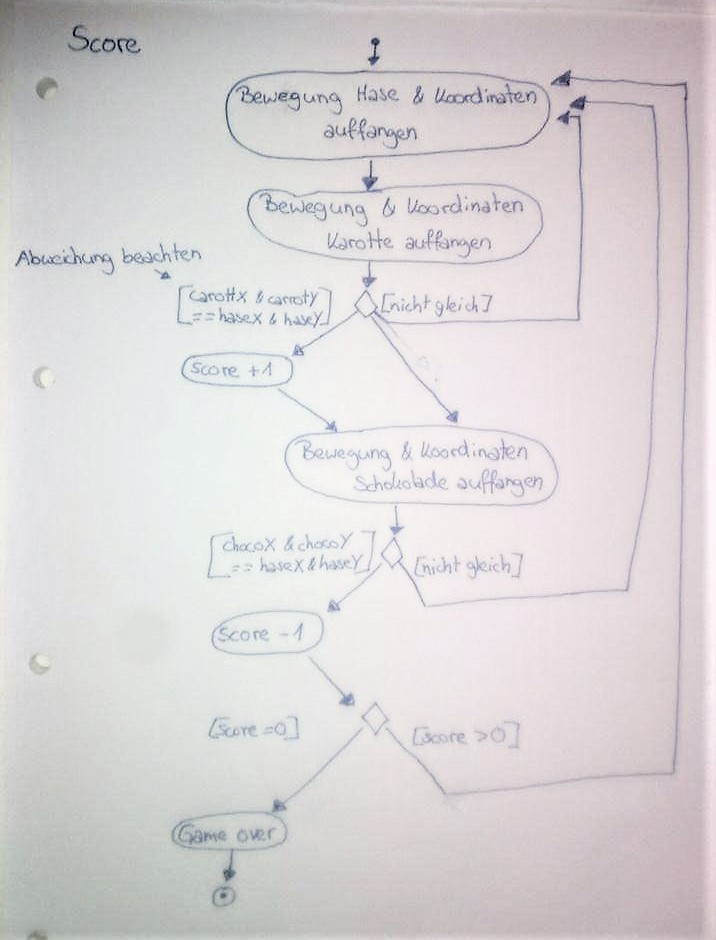 Score
Bewegung Hase & Koordinaten
auffangen
Bewegung & Koordinaten
Karotte auffangen
Abweichung beachten
[carottX & carrotY
== haseX & haseY]
[nicht gleich]
Score +1
Bewegung & Koordinaten
Schokolade auffangen
[chocoX & chocoY
== haseX & haseY]
[nicht gleich]
Score -1
[Score =0]
[score >0]
Game over